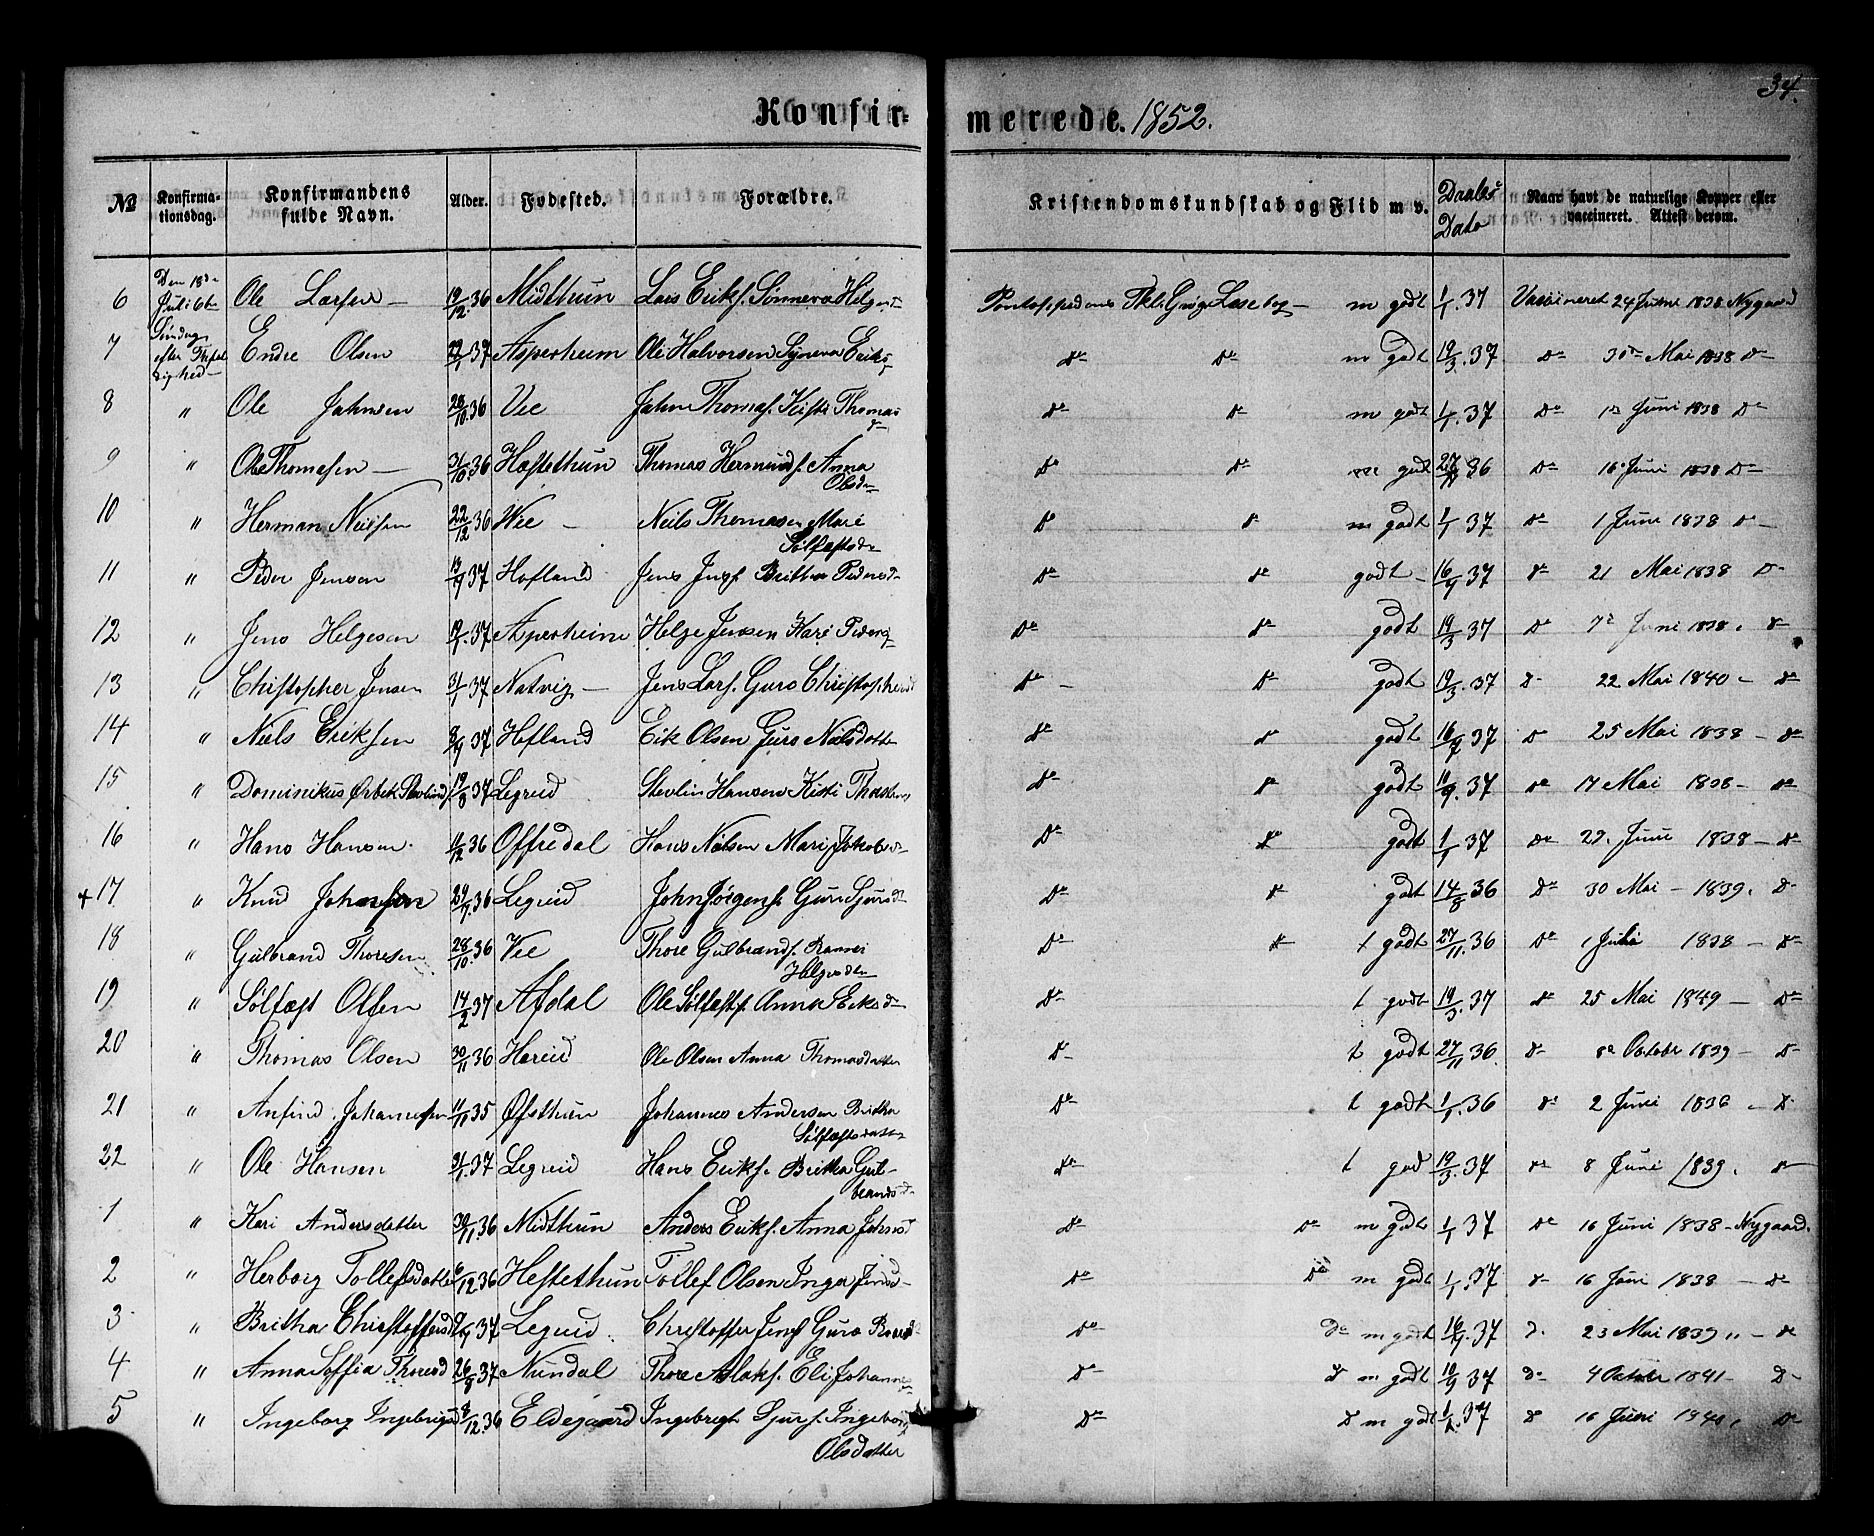 34.
Konfir- merede. 1852.
№ Konfirma-tionsdag. Konfirmandens fulde Navn. Alder. Fødested. Forældre. Kristendomskundskab og Flid m v. Daabs Dato Naar havt de naturlige Kopper eller vaccineret. Attest derom.
6 Den 18de Juli 6te Ole Larsen 19/12.36 Midthun Lars Eriks. Sønneva Helges Pontoppedans Tkl. Grøgs Læsebog m godt 1/1.37 Vaccineret 24 Juni 1838 Nygaard
7 Søndag efter Trefoldighed Endre Olsen 37 Asperheim Ole Halvorsen Synneva Eriks do do m godt 19/3.37 Do 30te Mai 1838 Do
8 " Ole Johnsen 28/10.36 Vee John Thomas. Kristi Thomasd do do m godt 1/1.37 Do Juni 1838 Do
9 " Ole Thomasen 31/10.36 Hæftethun Thomas Hermunds. Anna Olsdr Do Do m godt 36 Do 16 Juni 1838 Do
10 " Herman Neilsen 22/12.36 Wee Neils Thomasen Mari Sølfæstsdr Do do m godt 1/1.37 do 1 Juni 1838 do
11 " Peder Jensen 37 Hofland Jens Jngs. Britha Pedersd Do do godt 16/9.37 do 21 Mai 1838 Do
12 " Jens Helgesen 37 Asperheim Helge Jensen Kari Peders Do do godt 19/3.37 Do Juni 1838. do
13 " Christopher Jensen 31/1.37 Natvig Jens Lars. Guro Christophersd do Do godt 19/3.37 do 22 Mai 1840 do
14 " Niels Eriksen 37 Hofland Erik Olsen Guro Nielsdatter do do godt 37 do 25 Mai 1838 do
15 " Dominikus Ørbek Stevlinds. 37 Legreid Stevlin Hansen Kisti Thorstens do do godt 37 do 17 Mai 1838 do
16 " Hans Hansen 36 Offredal Hans Nielsen Mari Jokobsd Do do godt 37 do 22. Juni 1838 do
+17 " Knud Johnsen 36 Legreid John Jørgens. Guru Sjursd Do do godt 14/8.36 Do 30 Mai 1839. D
18 " Gulbrand Thoresen 28/10.36 Vee Thore Gulbrands. Rannei Helgesdtr Do do t godt 27/11.36 Do 1 Juli 1838 do
19 " Sølfæst Olsen 14/2.37 Afdal Ole Sølfæsts. Anna Eriksd Do t godt 19/3.37 do 25 Mai 1849 Do
20 " Thomas Olsen 30/11.36 Hereid Ole Olsen Anna Thomasdatter D t godt 27/11.36. do 8de Octobr 1839 D
21 " Anfind Johannesen 11/11.35 Øfsthun Johannes Andersen Britha Sølfæstsdatter Do t godt 1/1.36 do 2 Juni 1836 D
22 " Ole Hansen 37 Legreid Hans Eriks. Britha Gulbrandsd do t god 19/3.37 do 8 Juni 1839. do
1 " Kari Andersdatter 30/11.36 Midthun Anders Eriks. Anna Johnsd do Do m godt 1/1.37 Do 16 Juni 1838 Nygaard.
2 " Herborg Tollefsdatter 6/12.36 Hestethun Tollef Olsen Inga Do Do m godt 1/1.37 do 16 Juni 1838 do
3 " Britha Christoffersd 37 Legreid Christoffer Jens. Guro do Do m godt 37 d. 23 Mai 1839 do
4 " Anna Soffia Thoresd 26/9.37 Nundal Thore Aslaks. Eli Johannes D D m godt 37 do 4 October 1841 D
5 " Ingeborg Ingebrigtsd 8/12.36 Eldegaard Ingebregt Sjurs. Ingeborg Olsdatter Do D m godt 37 do 16 Juni 1840. Do